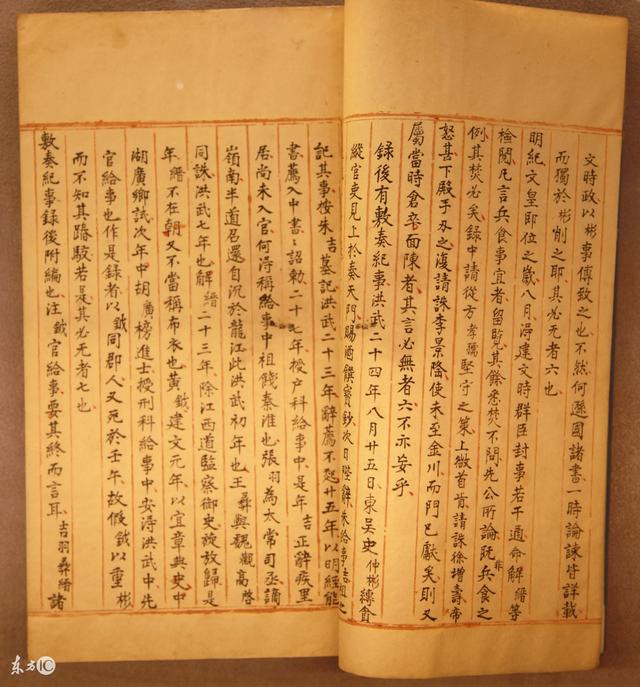 文時政以彬事傅致之也不然何遜國諸書一時論諫皆詳載
而獨於彬削之耶其必无者六也
明紀文皇即位之歲八月淂建文時群臣封事若干通命解縉等
檢閱凡言兵食事宜者留覧其餘悉焚不問先公所論既非兵食之
例其焚必矣録中請從方孝孺堅守之策上徴首肯請誅徐增壽帝
怒甚下殿手刃之復請誅李景隆使未至金川而門已獻矣則又
屬當時倉卒面陳者其言必無者六不亦妄乎
録後有敷奏紀事洪武二十四年八月廿五日東吴史仲彬縛貪
縱官吏見上於奏天門賜酒饌寳鈔次日陛辭朱給事吉祖之
記其事按朱吉墓記洪武二十三年辭薦不起廿五年以明經能
書薦入中書詔勅二十七年授户科給事中是年吉正辭疾里
居尚未入官何淂稱給事中祖餞秦淮也張羽為太常司丞謫
嶺南半道召還自沉於龍江此洪武初年也王彛與魏觀高啓
同誅洪武七年也解縉二十三年除江西道監察御史旋放歸是
年縉不在朝又不當稱布衣也黄鉞建文元年以宜章典史中
湖廣鄉試次年中胡廣榜進士授刑科給事中安淂洪武中先
官給事也作是録者以鉞同郡人又死於壬年故假鉞以重彬
而不知其踳駁若是其必无者七也
敷奏紀事録後附編也注鉞官給事要其終而言耳吉羽彛縉諸
东方IC